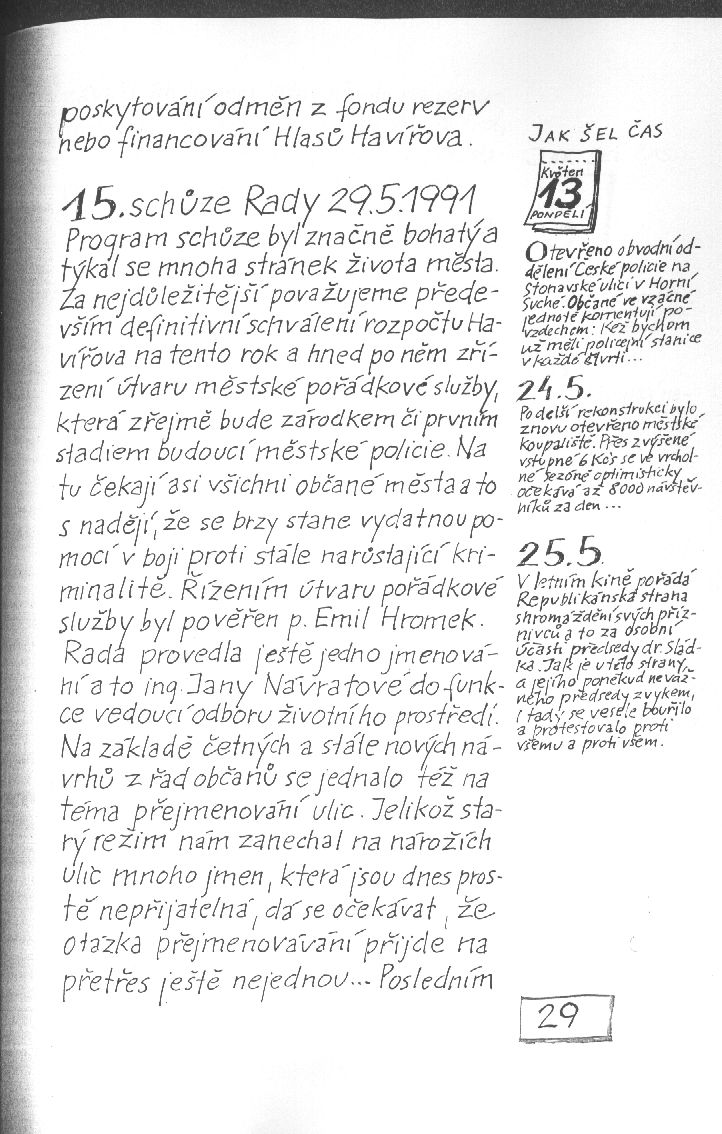 poskytování odměn z fondu rezerv
nebo financování Hlasů Havířova.
15. schůze Rady 29.5.1991
Program schůze byl značně bohatý a
týkal se mnoha stránek života města.
Za nejdůležitější považujeme přede-
vším definitivní schválení rozpočtu Ha-
vířova na tento rok a hned po něm zří-
zení útvaru městské pořádkové služby,
která zřejmě bude zárodkem či prvním
stadiem budoucí městské policie. Na
tu čekají asi všichni občané města a to
s nadějí, že se brzy stane vydatnou po-
mocí v boji proti stále narůstající kri-
minalitě. Řízením útvaru pořádkové
služby byl pověřen p. Emil Hromek.
Rada provedla ještě jedno jmenová-
ní a to ing. Jany Návratové do funk-
ce vedoucí odboru životního prostředí.
Na základě četných a stále nových ná-
vrhů z řad občanů se jednalo též na
téma přejmenování ulic. Jelikož sta-
rý režim nám zanechal na nárožích
ulic mnoho jmen, která jsou dnes pros-
tě nepřijatelná, dá se očekávat, že
otázka přejmenovávání přijde na
přetřes ještě nejednou... Posledním
JAK ŠEL ČAS
Květen
13
PONDĚLÍ
Otevřeno obvodní od-
dělení České policie na
Stonavské ulici v Horní
Suché. Občané ve vzácné
jednotě komentují po-
vzdechem: Kéž bychom
už měli policejní stanice
v každé čtvrti...
24.5.
Po delší rekonstrukci bylo
znovu otevřeno městské
koupaliště. Přes zvýšené
vstupné 6 Kčs se ve vrchol-
né sezóně optimisticky
očekává až 8000 návštěv-
níků za den...
25.5.
V letním kině pořádá
Republikánská strana
shromáždění svých příz-
nivců a to za osobní
účasti předsedy dr. Slád-
ka. Jak je u této strany
a jejího poněkud neváž-
ného předsedy zvykem,
i tady se vesele bouřilo
a protestovalo proti
všemu a proti všem.
29